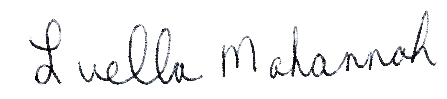 Luella Mahannah